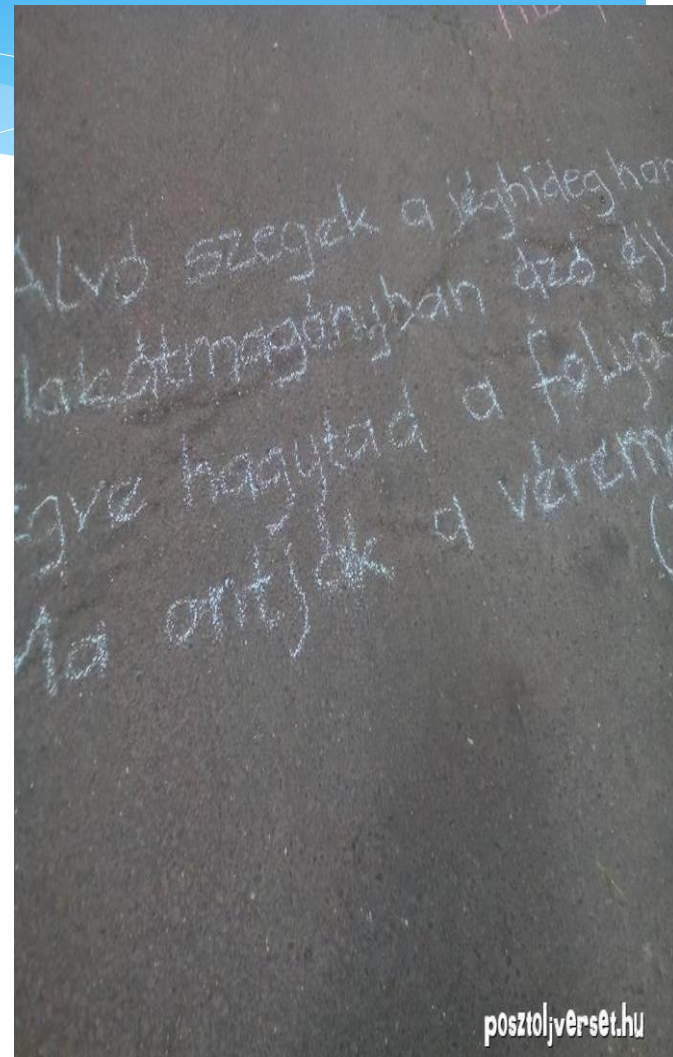 Alvó szegek a jéghideg hom
lakátmagányban ázó éjj
Égve hagytad a folyos
Ma ontják a vérem
posztoljverset.hu